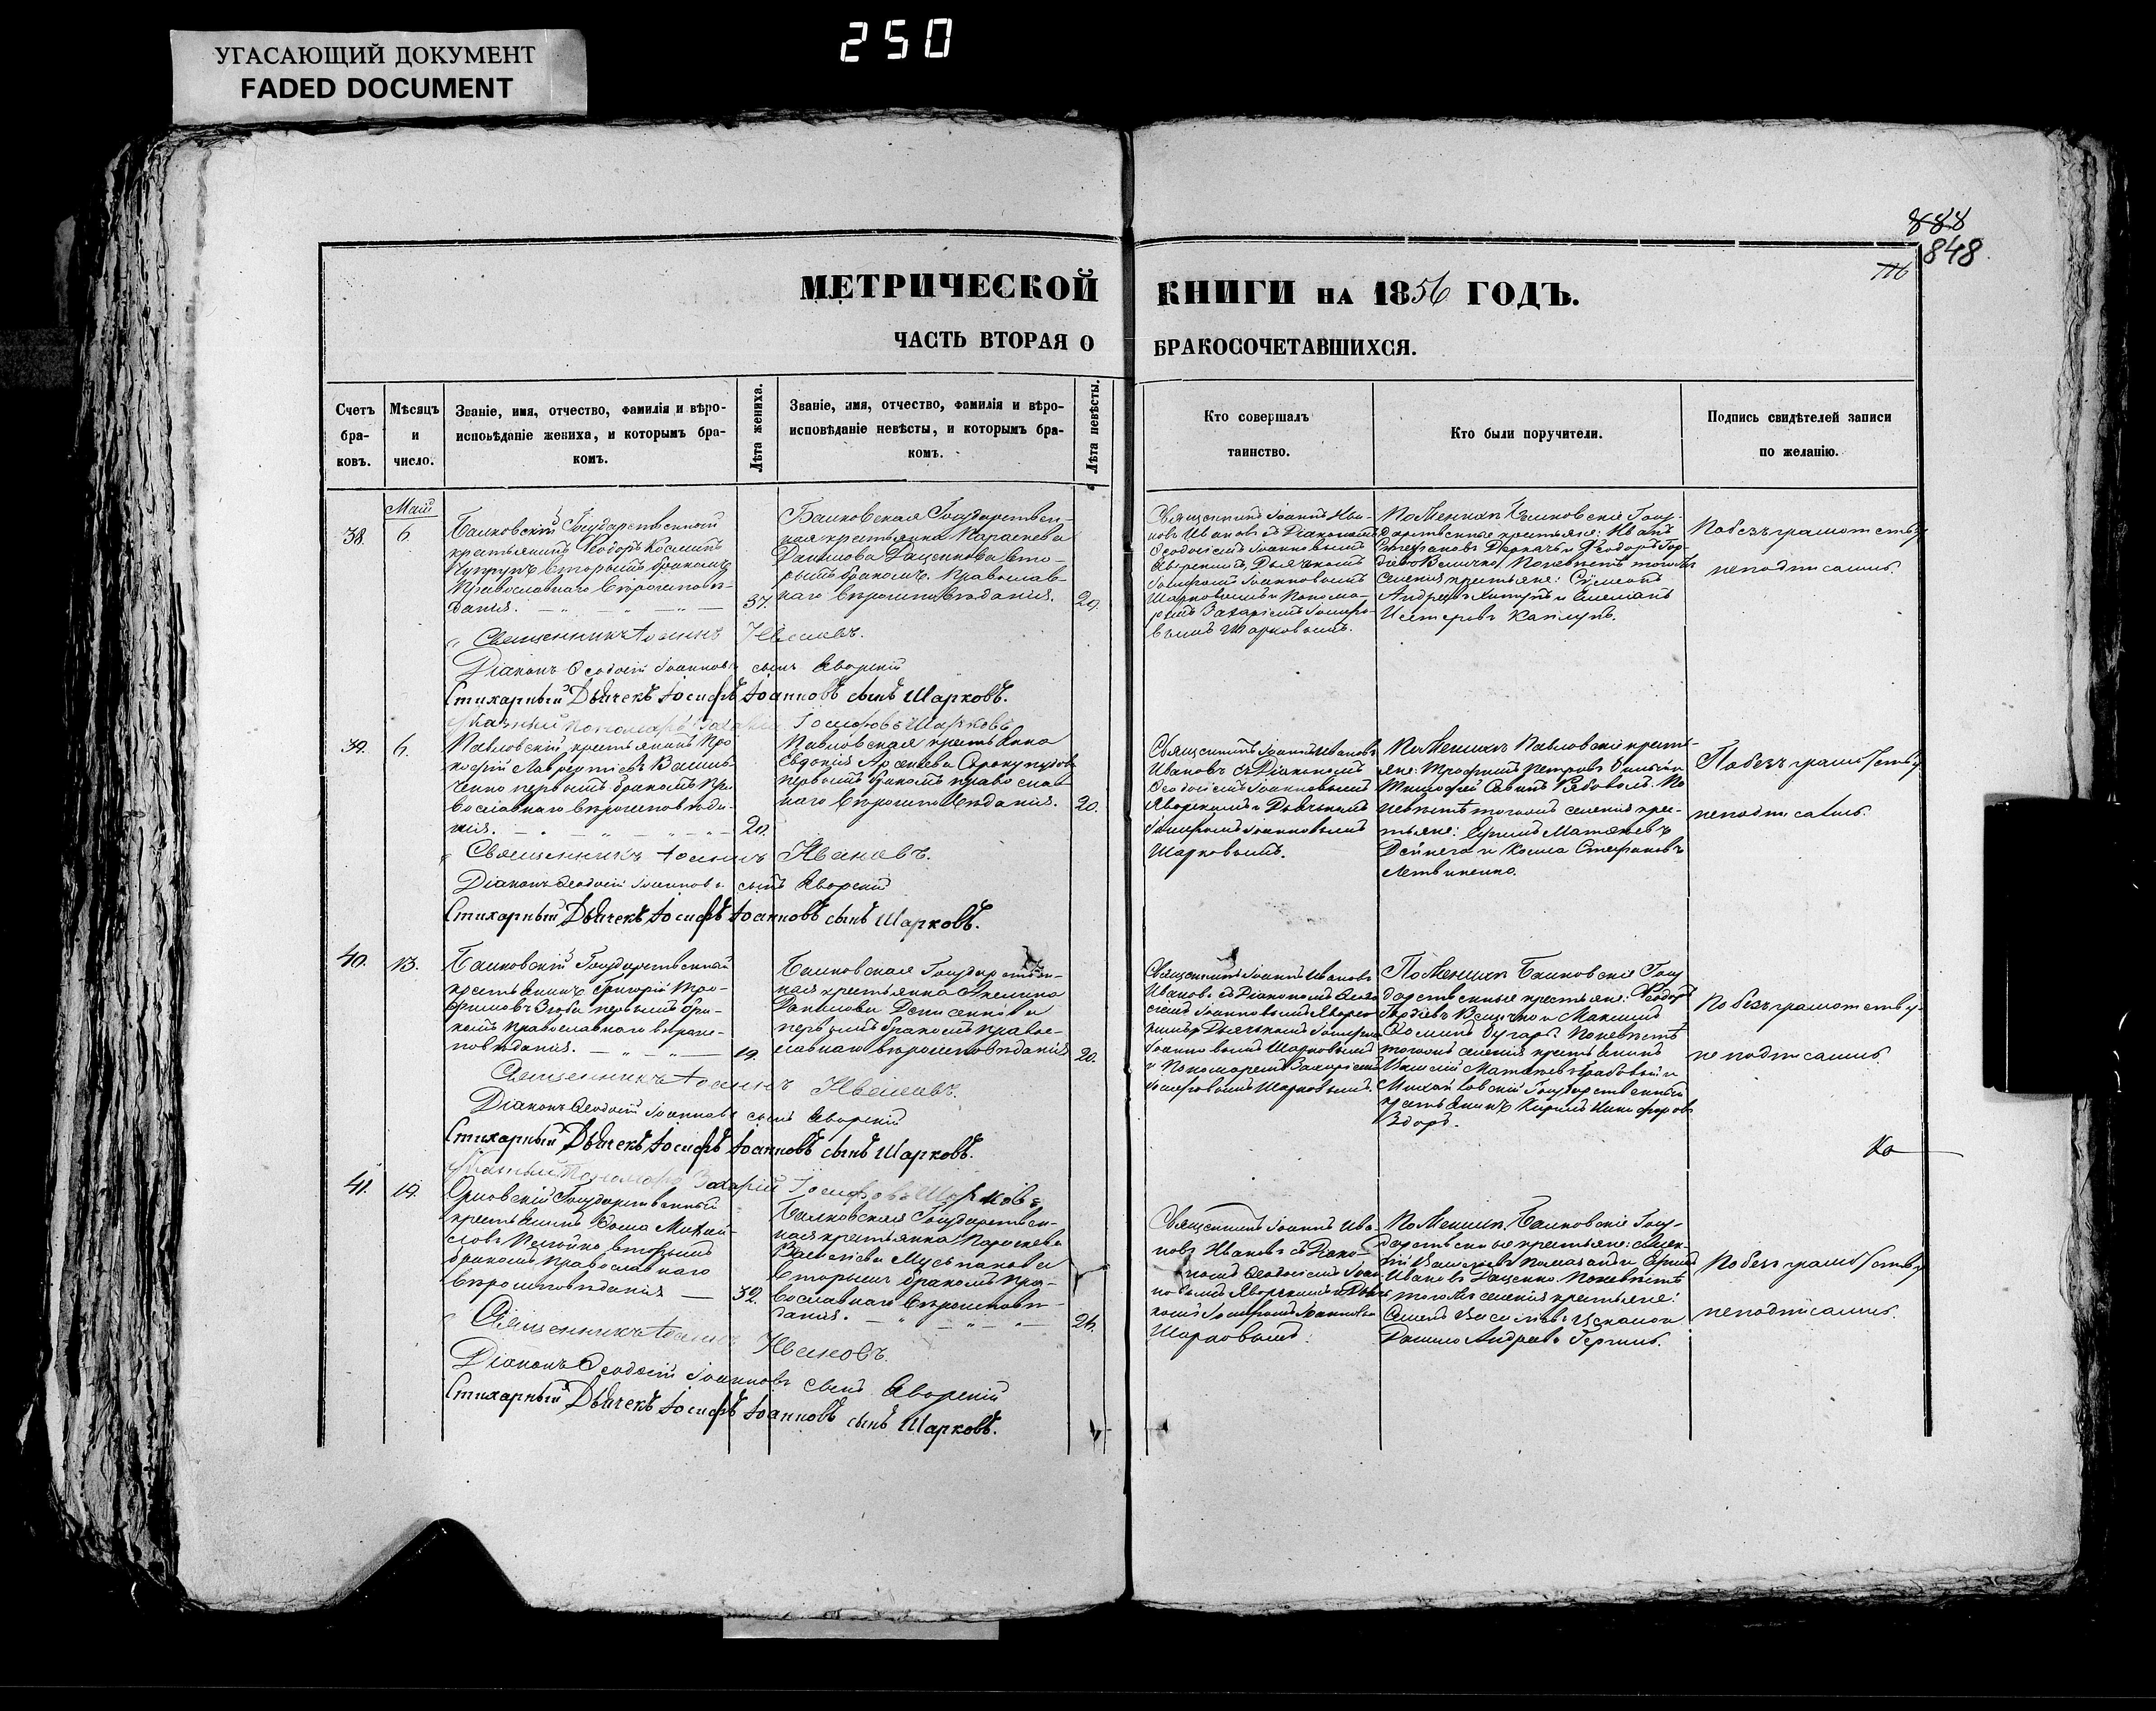 УГАСАЮЩИЙ ДОКУМЕНТ
FADED DOCUMENT
250
888
848
116
МЕТРИЧЕСКОЙ КНИГИ НА 1856 ГОДЪ.
ЧАСТЬ ВТОРАЯ О БРАКОСОЧЕТАВШИХСЯ.
Счетъ браковъ.
Мѣсяцъ и число.
Званіе, имя, отчество, фамилія и вѣро-
исповѣданіе жениха, и которымъ бра-
комъ.
Лѣта жениха.
Званіе, имя, отчество, фамилія и вѣро-
исповѣданіе невѣсты, и которымъ бра-
комъ.
Лѣта невѣсты.
Кто совершалъ
таинство.
Кто были поручители.
Подпись свидѣтелей записи
по желанію.
Маій
38.
6
Балковскій Государственный
крестьянинъ Ѳеодоръ Косминъ
вторымъ бракомъ
Православнаго Вѣроисповѣ-
данія.
37.
Балковская Государствен-
ная крестьянка Параскева
Данилова Даценкова вто-
рымъ бракомъ Православ-
наго Вѣроисповѣданія.
20.
Священникъ Іоаннъ Ива-
новъ Ивановъ съ Діакономъ
Ѳеодосіемъ Іоанновымъ
Яворскимъ, Дьячкомъ
Іосифомъ Іоанновымъ
Шарковымъ и Понома-
ремъ Захаріемъ Іосифо-
вымъ Шарковымъ.
По Женихѣ Балковскіе Госу-
дарственные крестьяне: Иванъ
Стефановъ Деркачъ и Ѳеодоръ Гор-
діевъ Величко; По невѣстѣ того жъ
селенія крестьяне: Сѵмеонъ
Андреевъ
Нестеровъ Каплунъ.
По безграмотству
неподписались.
Священникъ Іоаннъ Ивановъ.
Діаконъ Ѳеодосій Іоанновъ сынъ Яворскій
Стихарный Дьячекъ Іосифъ Іоанновъ сынъ Шарковъ.
Указный Пономарь Захарій Іосифовъ Шарковъ
39.
6.
Павловскій крестьянинъ Про-
кофій Лаврентіевъ Василь-
ченко первымъ бракомъ Пра-
вославнаго вѣроисповѣда-
нія.
20.
Павловская крестьянка
Евдокія Арсеньева Сорокупудова
первымъ бракомъ православ-
наго вѣроисповѣданія.
20.
Священникъ Іоаннъ Ивановъ
Ивановъ съ Діакономъ
Ѳеодосіемъ Іоанновымъ
Яворскимъ и Дьячкомъ
Іосифомъ Іоанновымъ
Шарковымъ.
По Женихѣ Павловскіе кресть-
яне: Трофимъ Петровъ
Тимофей Савинъ Рябоволъ. По
невѣстѣ того жъ селенія крес-
тьяне: Матвѣевъ
Дейнега и Косма Стефановъ
Литвиненко.
По безграмотству
неподписались.
Священникъ Іоаннъ Ивановъ.
Діаконъ Ѳеодосій Іоанновъ сынъ Яворскій
Стихарный Дьячекъ Іосифъ Іоанновъ сынъ Шарковъ.
40.
13.
Балковскій Государственный
крестьянинъ Григорій Тро-
фимовъ Зюба первымъ бра-
комъ Православнаго вѣроис-
повѣданія.
19.
Балковская Государствен-
ная крестьянка Акелина
Данилова Денисенкова
первымъ бракомъ Право-
славнаго вѣроисповѣданія
20.
Священникъ Іоаннъ Ивановъ
Ивановъ съ Діакономъ Ѳеодо-
сіемъ Іоанновымъ Яворс-
кимъ Дьячкомъ Іосифомъ
Іоанновымъ Шарковымъ
и Пономаремъ Захаріемъ
Іосифовымъ Шарковымъ.
По Женихѣ Балковскіе Госу-
дарственные крестьяне: Ѳеодоръ
Гордіевъ Величко и Максимъ
По невѣстѣ
того жъ селенія крестьянинъ
Матвѣевъ и
Михайловскій Государственный
крестьянинъ Кирилъ Никифоровъ
По безграмотству
неподписались.
Священникъ Іоаннъ Ивановъ.
Діаконъ Ѳеодосій Іоанновъ сынъ Яворскій
Стихарный Дьячекъ Іосифъ Іоанновъ сынъ Шарковъ.
Указный Пономарь Захарій Іосифовъ Шарковъ
41.
19.
Орловскій Государственный
крестьянинъ Ѳома Михай-
ловъ вторымъ
бракомъ Православнаго
Вѣроисповѣданія
32.
Балковская Государствен-
ная крестьянка Параскева
Васильева
вторымъ бракомъ Пра-
вославнаго Вѣроисповѣ-
данія.
26.
Священникъ Іоаннъ Ива-
новъ Ивановъ съ Діако-
номъ Ѳеодосіемъ Іоан-
новымъ Яворскимъ и Дьяч-
комъ Іосифомъ Іоанновы
Шарковымъ.
По Женихѣ Балковскіе Госу-
дарственные крестьяне: Алек-
Ивановъ Даценко. По невѣстѣ
того жъ селенія крестьяне:
Данило Андреевъ
По безграмотству
неподписались.
Священникъ Іоаннъ Ивановъ.
Діаконъ Ѳеодосій Іоанновъ сынъ Яворскій
Стихарный Дьячекъ Іосифъ Іоанновъ сынъ Шарковъ.